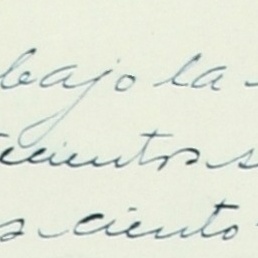 bajo la
cientos s
s ciento